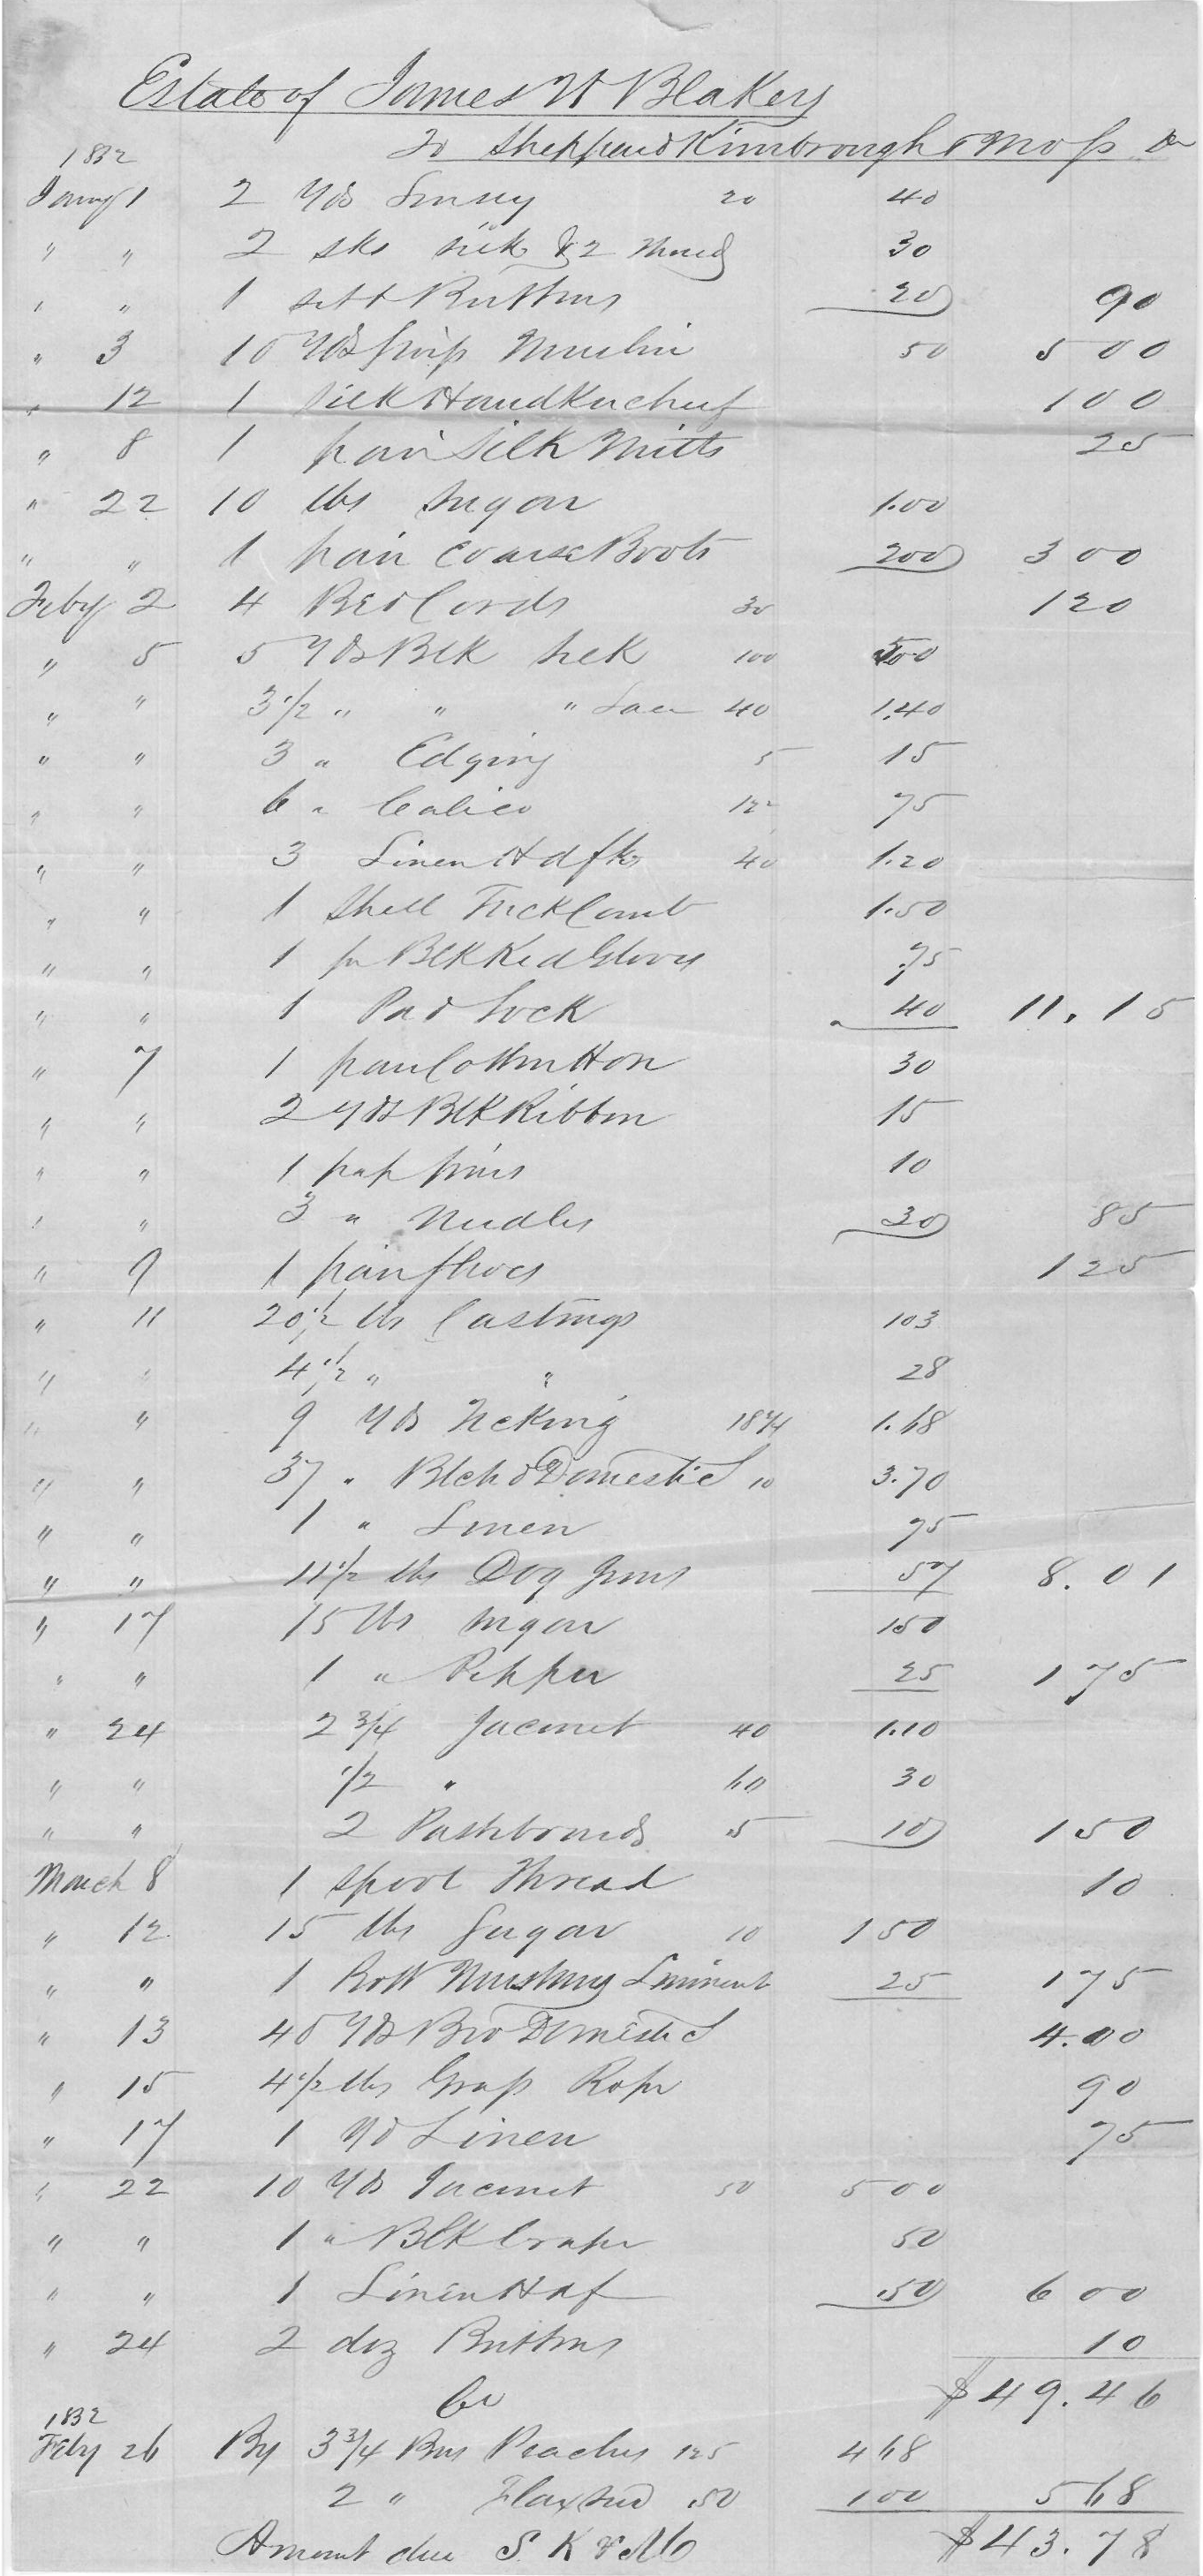 Estate of James W Blakey
To Sheppard Kimbrough & Moss Dr
1832
Jany 1 2 Yds Linsey 20 40
" " 2 sks silk & 2 thread 30
" " 1 sett Buttons 20 90
" 3 10 Yds Swiss Muslin 50 500
" 12 1 silk Handkerchief 100
" 8 1 pair Silk Mitts 25
" 22 10 lbs sugar 1.00
" " 1 pair Coarse Boots 200 300
Feby 2 4 Bed Cords 30 120
" 5 5 Yds Blk silk 100 500
" " 3 1/2 " " " Lace 40 1.40
" " 3 " Edging 5 15
" " 6 " Calico 12 75
" " 3 Linen Hdfks 40 1.20
" " 1 Shell Tuck Comb 1.50
" " 1 pr Blk Kid Gloves .75
" " 1 Pad Lock 40 11.15
" 7 1 pair Cotton Hose 30
" " 2 Yds Blk Ribbon 15
" " 1 pap pins 10
" " 3 " Needles 30 85
" 9 1 pair Shoes 125
" 11 20 1/2 lbs Castings 103
" " 4 1/2 " " 28
" " 9 Yds Ticking 18 3/4 1.68
" " 37 " Blchd Domestic 10 3.70
" " 1 " Linen 75
" " 11 1/2 lbs Dog Irons 57 8.01
" 17 15 lbs sugar 150
" " 1 " Pepper 25 175
" 24 2 3/4 Jaconet 40 1.10
" " 1/2 " 60 30
" " 2 Pasteboards 5 10 150
March 8 1 spool Thread 10
" 12 15 lbs Sugar 10 150
" " 1 Bott Mustang Liniment 25 175
" 13 40 Yds Bro Domestic 4.00
" 15 4 1/2 lbs Grass Rope 90
" 17 1 Yd Linen 75
" 22 10 Yds Jaconet 50 500
" " 1 " Blk Crape 50
" " 1 Linen Hdf .50 600
" 24 2 doz Buttons 10
$49.46
Cr
1832
Feby 26 By 3 3/4 Bus Peaches 125 468
2 " Flaxseed .50 100 568
Amount due S K & M $43.78